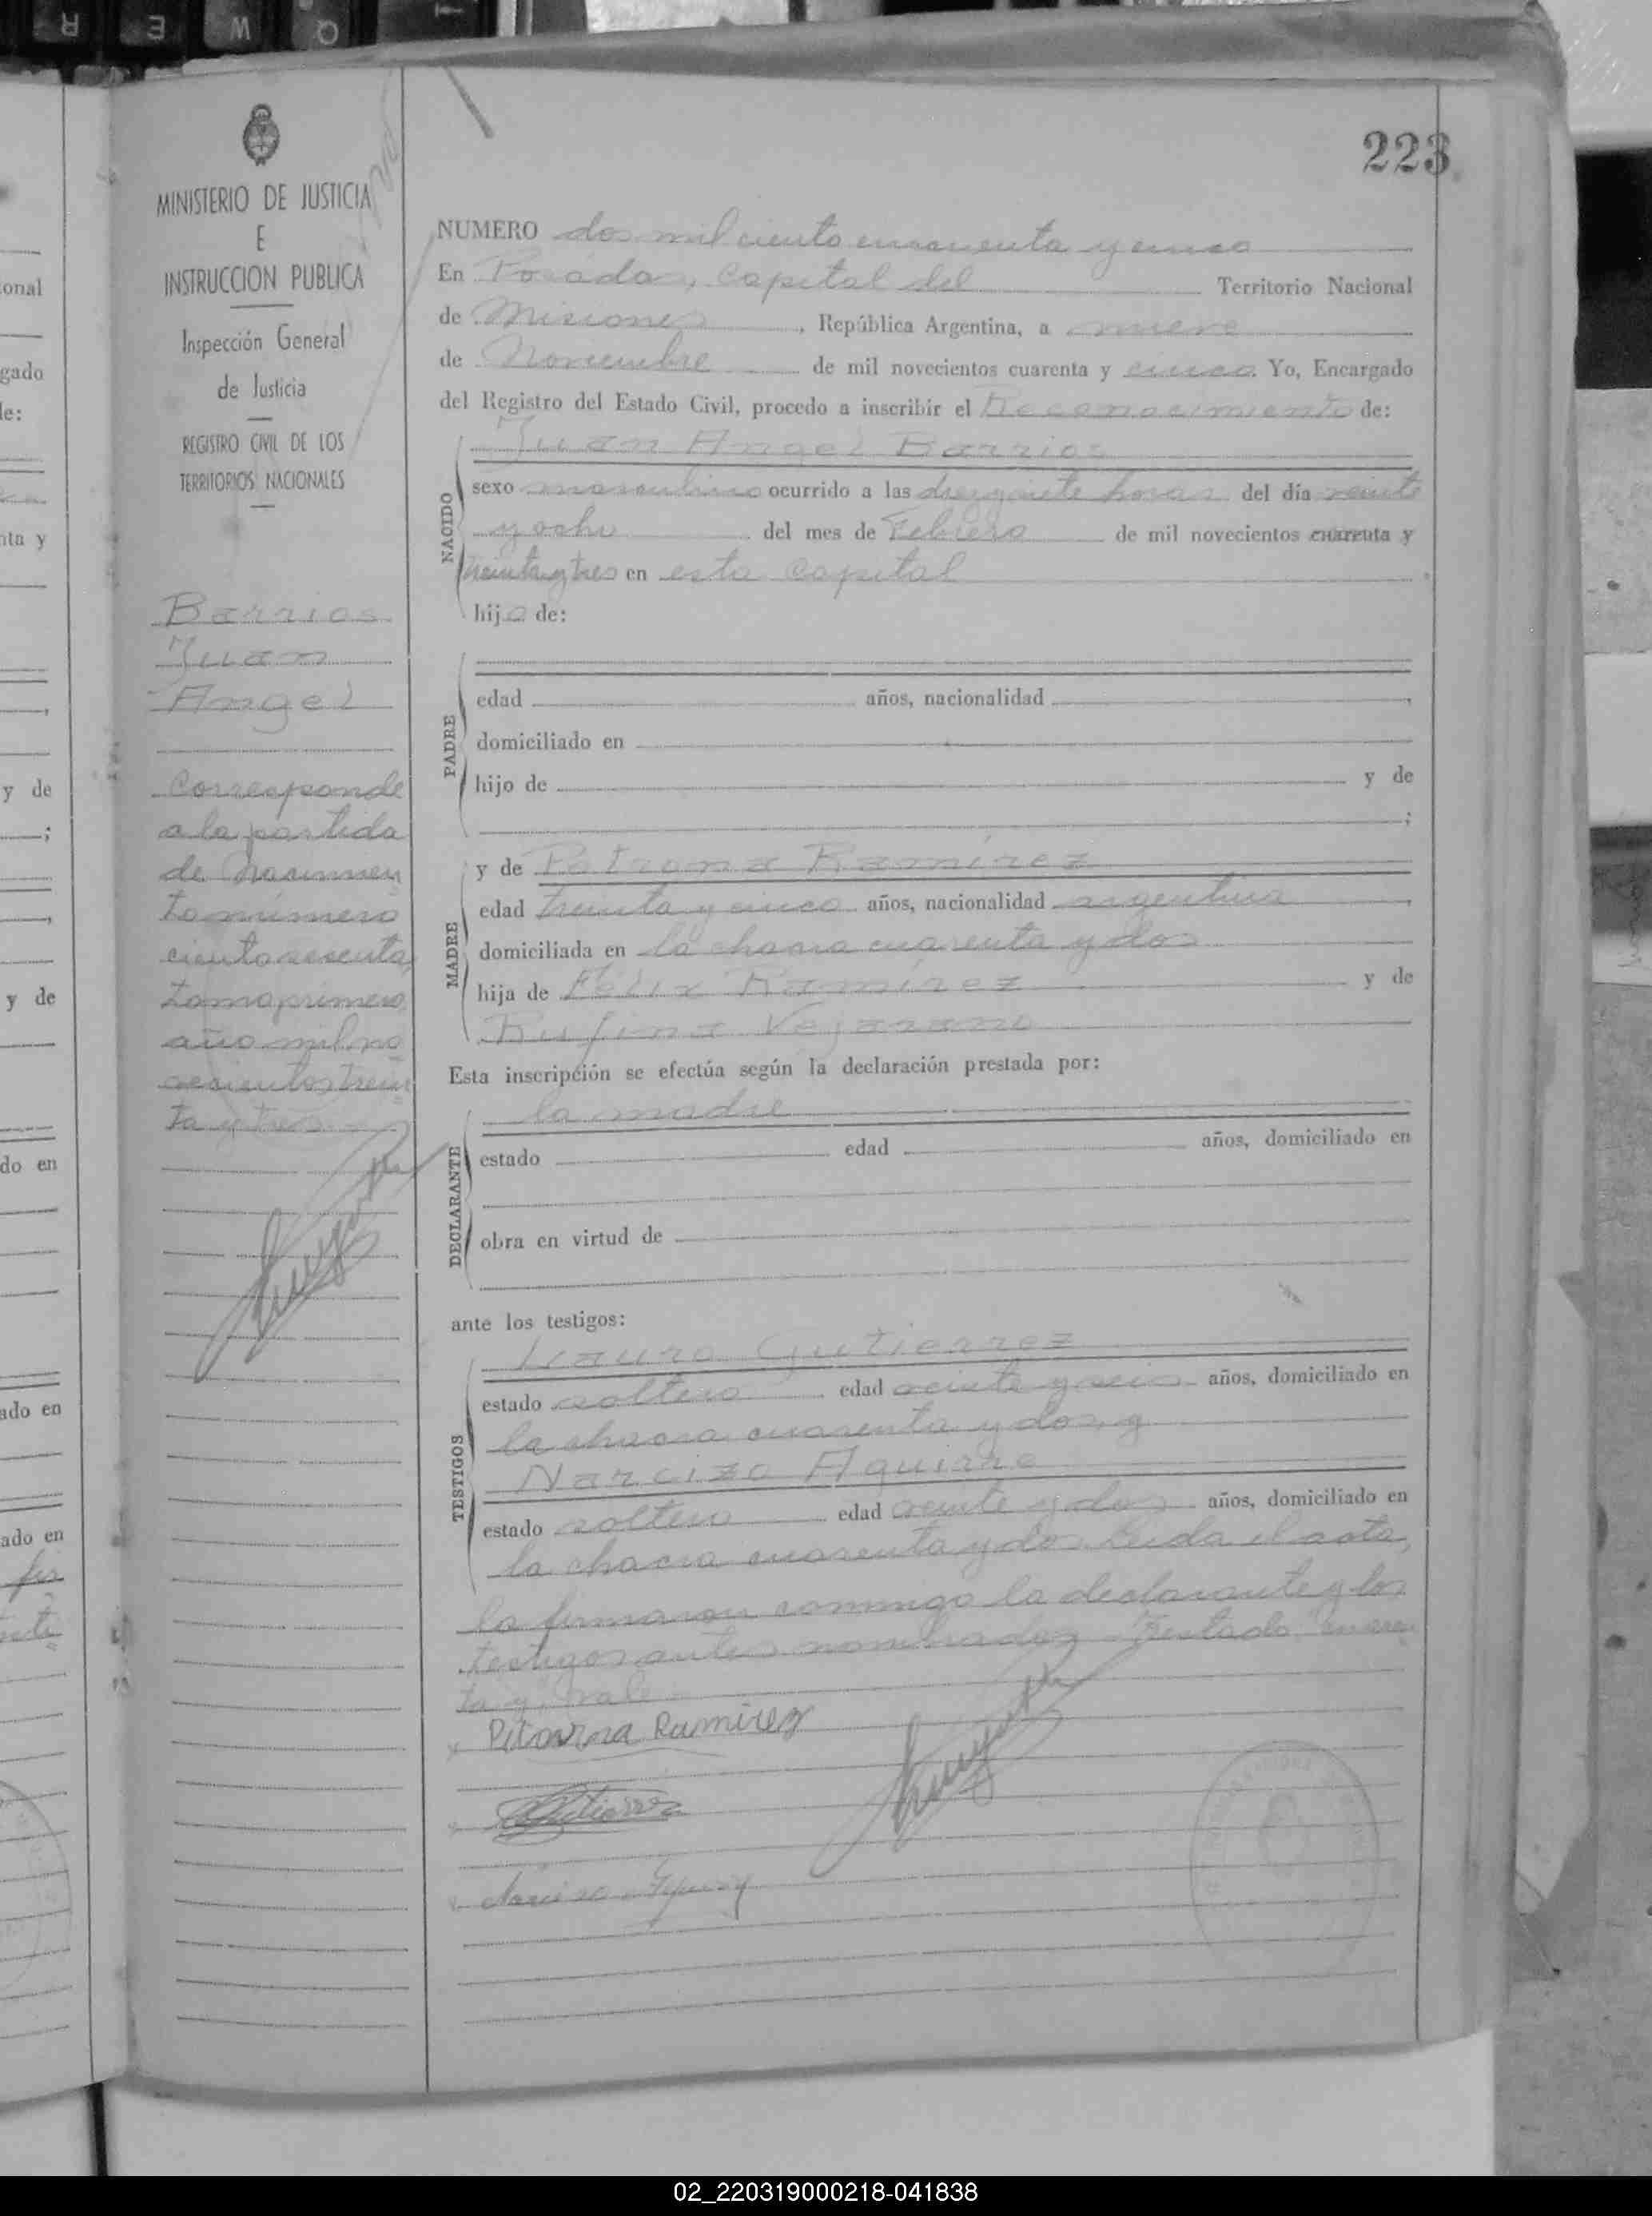 R E W Q
223
MINISTERIO DE JUSTICIA
E
INSTRUCCION PUBLICA
Inspección General
de Justicia
REGISTRO CIVIL DE LOS
TERRITORIOS NACIONALES
Barrios
Juan
Angel
Corresponde
a la partida
de Nacimien
to número
ciento sesenta,
tomo primero
año mil no
vecientos trein
ta y tres
NUMERO dos mil ciento cincuenta y cinco
En Posadas, Capital del Territorio Nacional
de Misiones, República Argentina, a nueve
de Noviembre de mil novecientos cuarenta y cinco. Yo, Encargado
del Registro del Estado Civil, procedo a inscribir el Reconocimiento de:
Juan Angel Barrios
NACIDO
sexo masculino ocurrido a las diezysiete horas del día veinte
y ocho del mes de Febrero de mil novecientos cuarenta y
treinta y tres en esta Capital
hijo de:
PADRE
edad años, nacionalidad ,
domiciliado en
hijo de y de
;
MADRE
y de Petrona Ramírez
edad treinta y cinco años, nacionalidad argentina ,
domiciliada en la chacra cuarenta y dos
hija de Félix Ramírez y de
Rufina Vejarano
Esta inscripción se efectúa según la declaración prestada por:
la madre
DECLARANTE
estado edad años, domiciliado en
obra en virtud de
ante los testigos:
TESTIGOS
Lauro Gutierrez
estado soltero edad veinte y seis años, domiciliado en
la chacra cuarenta y dos, y
Narcizo Aguirre
estado soltero edad veinte y dos años, domiciliado en
la chacra cuarenta y dos. Leida el acta,
la firmaron conmigo la declarante y los
testigos antes nombrados. Testado "cuaren
ta y" Vale
Ramirez
onal
gado
de:
nta y
y de
;
y de
do en
ado en
ado en
02_220319000218-041838